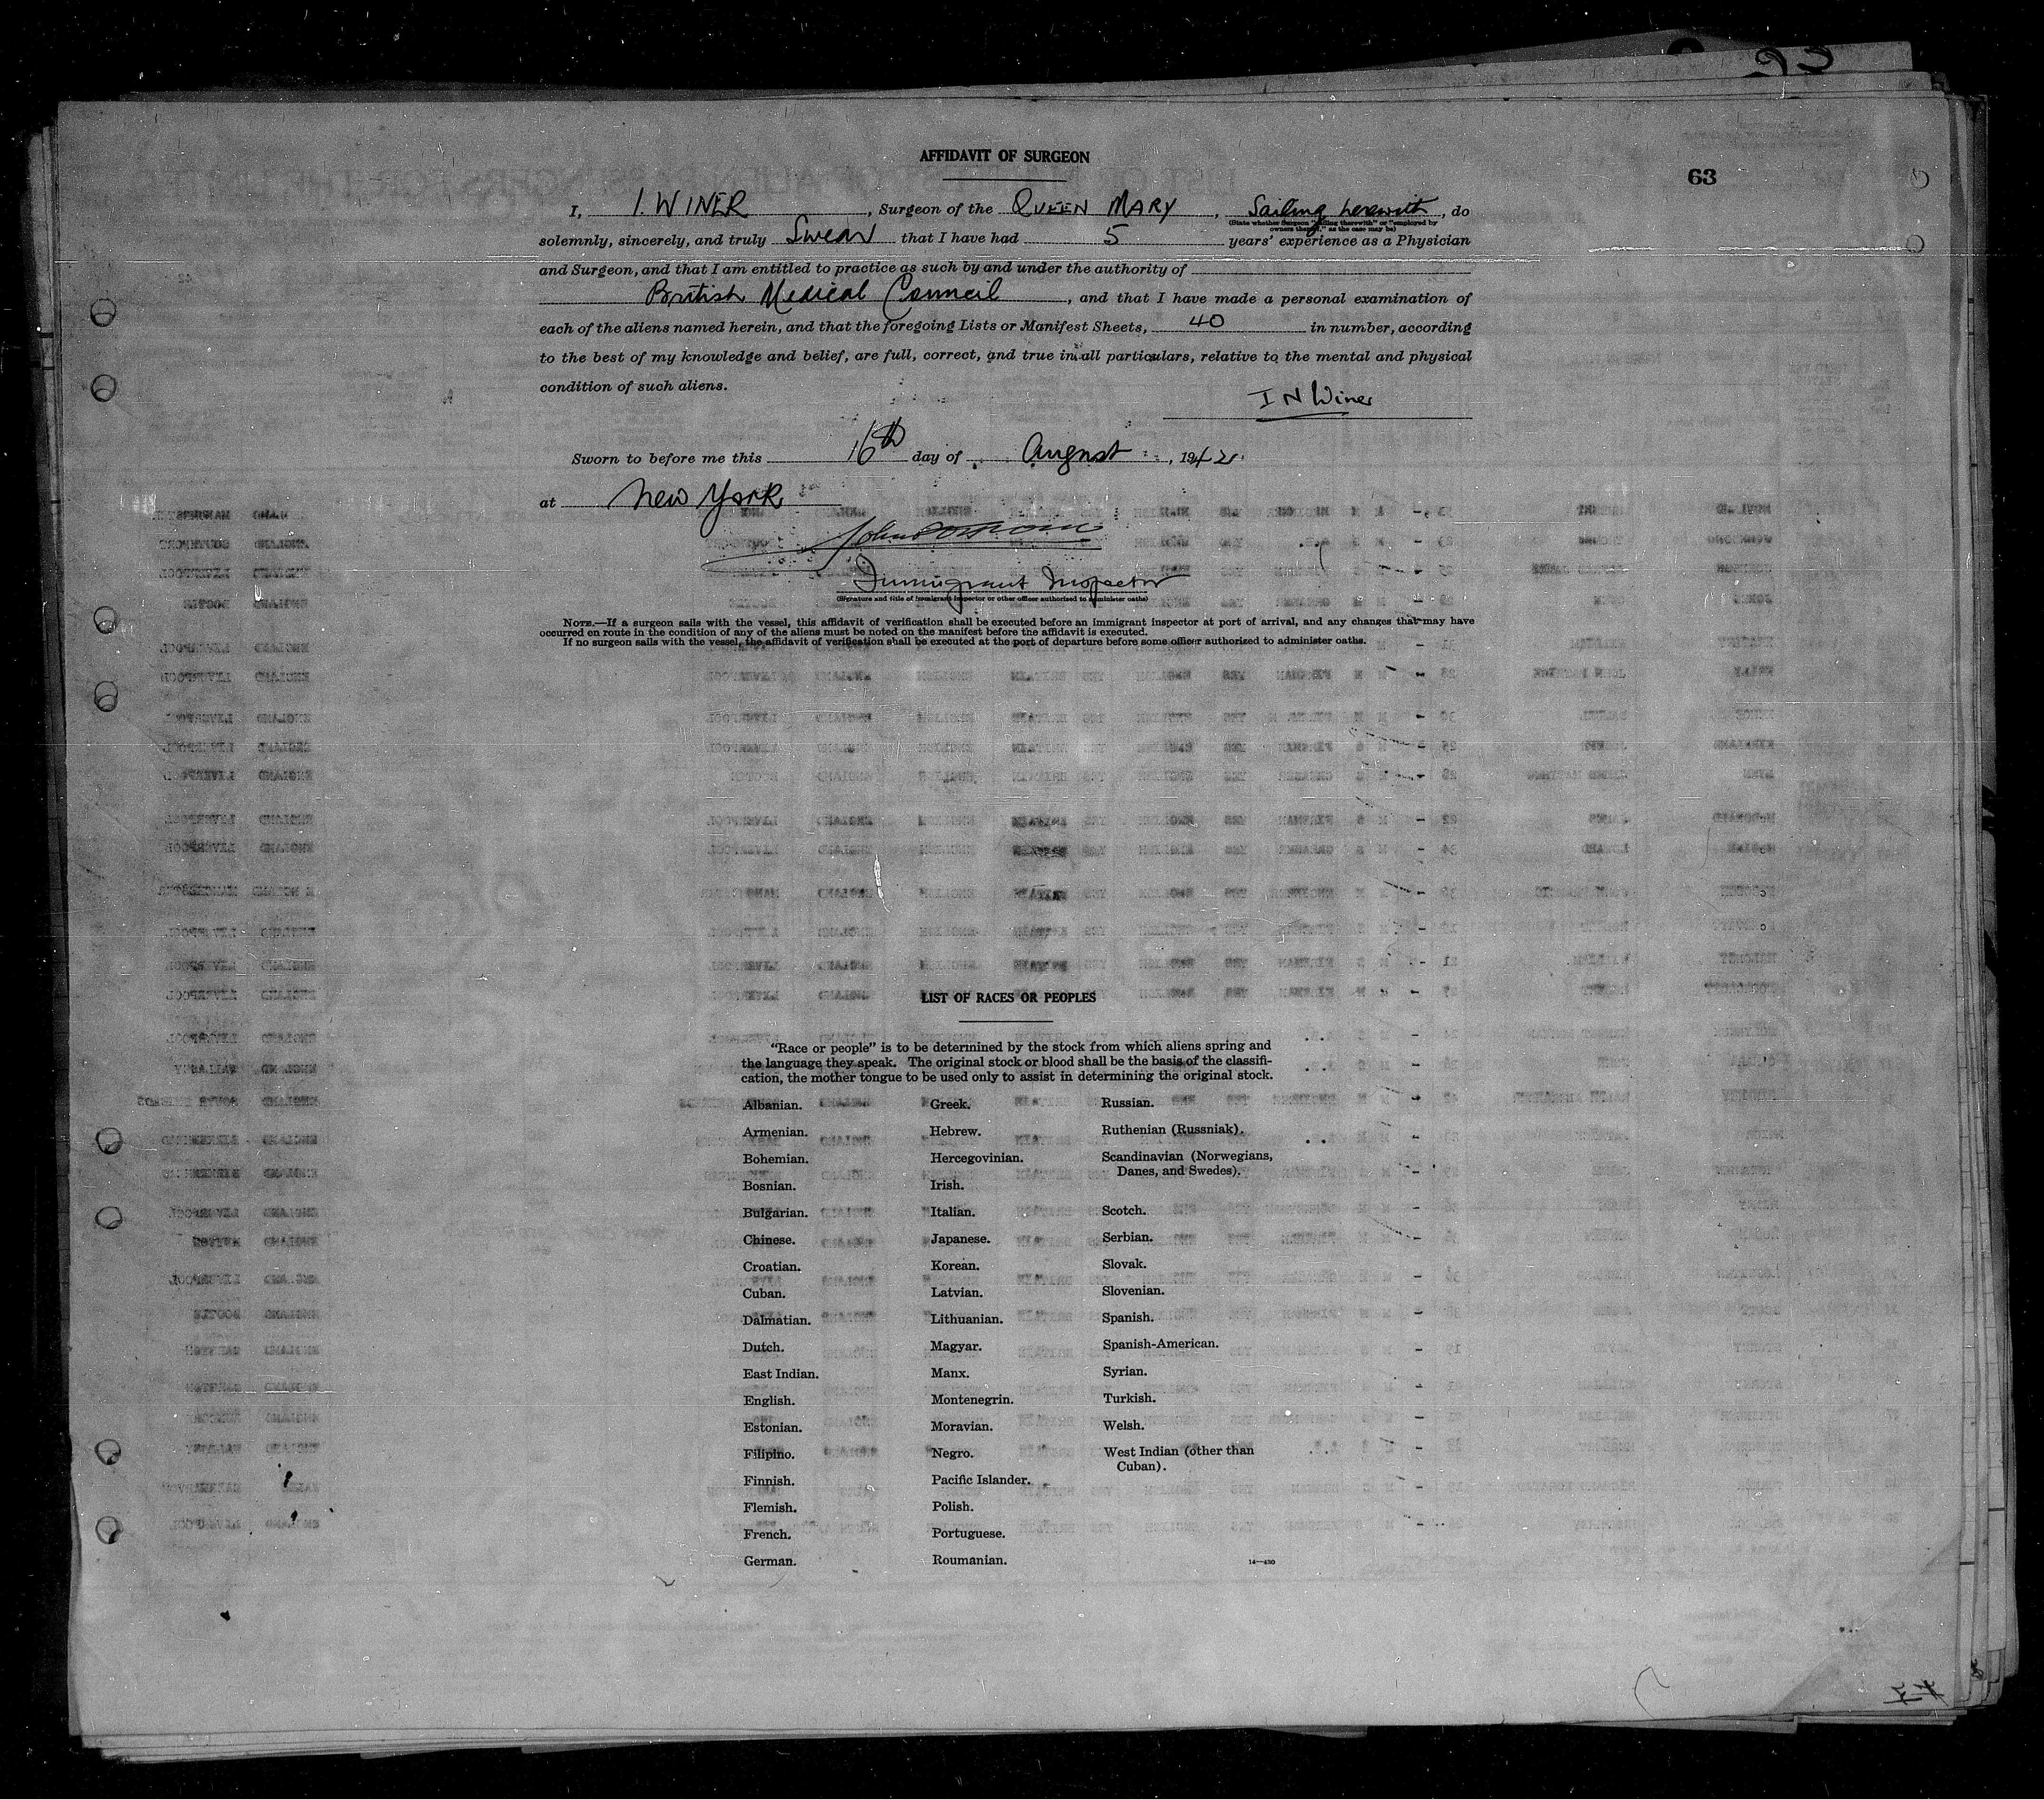 AFFIDAVIT OF SURGEON
63
I, I. WINER, Surgeon of the QUEEN MARY, Sailing herewith, do
(State whether Surgeon "sailing therewith" or "employed by
owners thereof," as the case may be)
solemnly, sincerely, and truly Swear that I have had 5 years' experience as a Physician
and Surgeon, and that I am entitled to practice as such by and under the authority of
British Medical Council, and that I have made a personal examination of
each of the aliens named herein, and that the foregoing Lists or Manifest Sheets, 40 in number, according
to the best of my knowledge and belief, are full, correct, and true in all particulars, relative to the mental and physical
condition of such aliens.
I N Winer
Sworn to before me this 16th day of August, 1942
at New York
Immigrant Inspector
(Signature and title of immigrant inspector or other officer authorized to administer oaths)
NOTE.—If a surgeon sails with the vessel, this affidavit of verification shall be executed before an immigrant inspector at port of arrival, and any changes that may have
occurred en route in the condition of any of the aliens must be noted on the manifest before the affidavit is executed.
If no surgeon sails with the vessel, the affidavit of verification shall be executed at the port of departure before some officer authorized to administer oaths.
LIST OF RACES OR PEOPLES
"Race or people" is to be determined by the stock from which aliens spring and
the language they speak. The original stock or blood shall be the basis of the classifi-
cation, the mother tongue to be used only to assist in determining the original stock.
Albanian.
Armenian.
Bohemian.
Bosnian.
Bulgarian.
Chinese.
Croatian.
Cuban.
Dalmatian.
Dutch.
East Indian.
English.
Estonian.
Filipino.
Finnish.
Flemish.
French.
German.
Greek.
Hebrew.
Hercegovinian.
Irish.
Italian.
Japanese.
Korean.
Latvian.
Lithuanian.
Magyar.
Manx.
Montenegrin.
Moravian.
Negro.
Pacific Islander.
Polish.
Portuguese.
Roumanian.
Russian.
Ruthenian (Russniak).
Scandinavian (Norwegians,
Danes, and Swedes).
Scotch.
Serbian.
Slovak.
Slovenian.
Spanish.
Spanish-American.
Syrian.
Turkish.
Welsh.
West Indian (other than
Cuban).
14—430